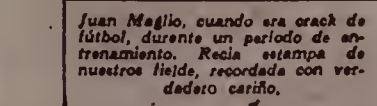 Juan Maglio, cuando era crack de
fútbol, durante un período de en-
trenamiento. Recia estampa de
nuestros fields, recordada con ver-
dadero cariño.